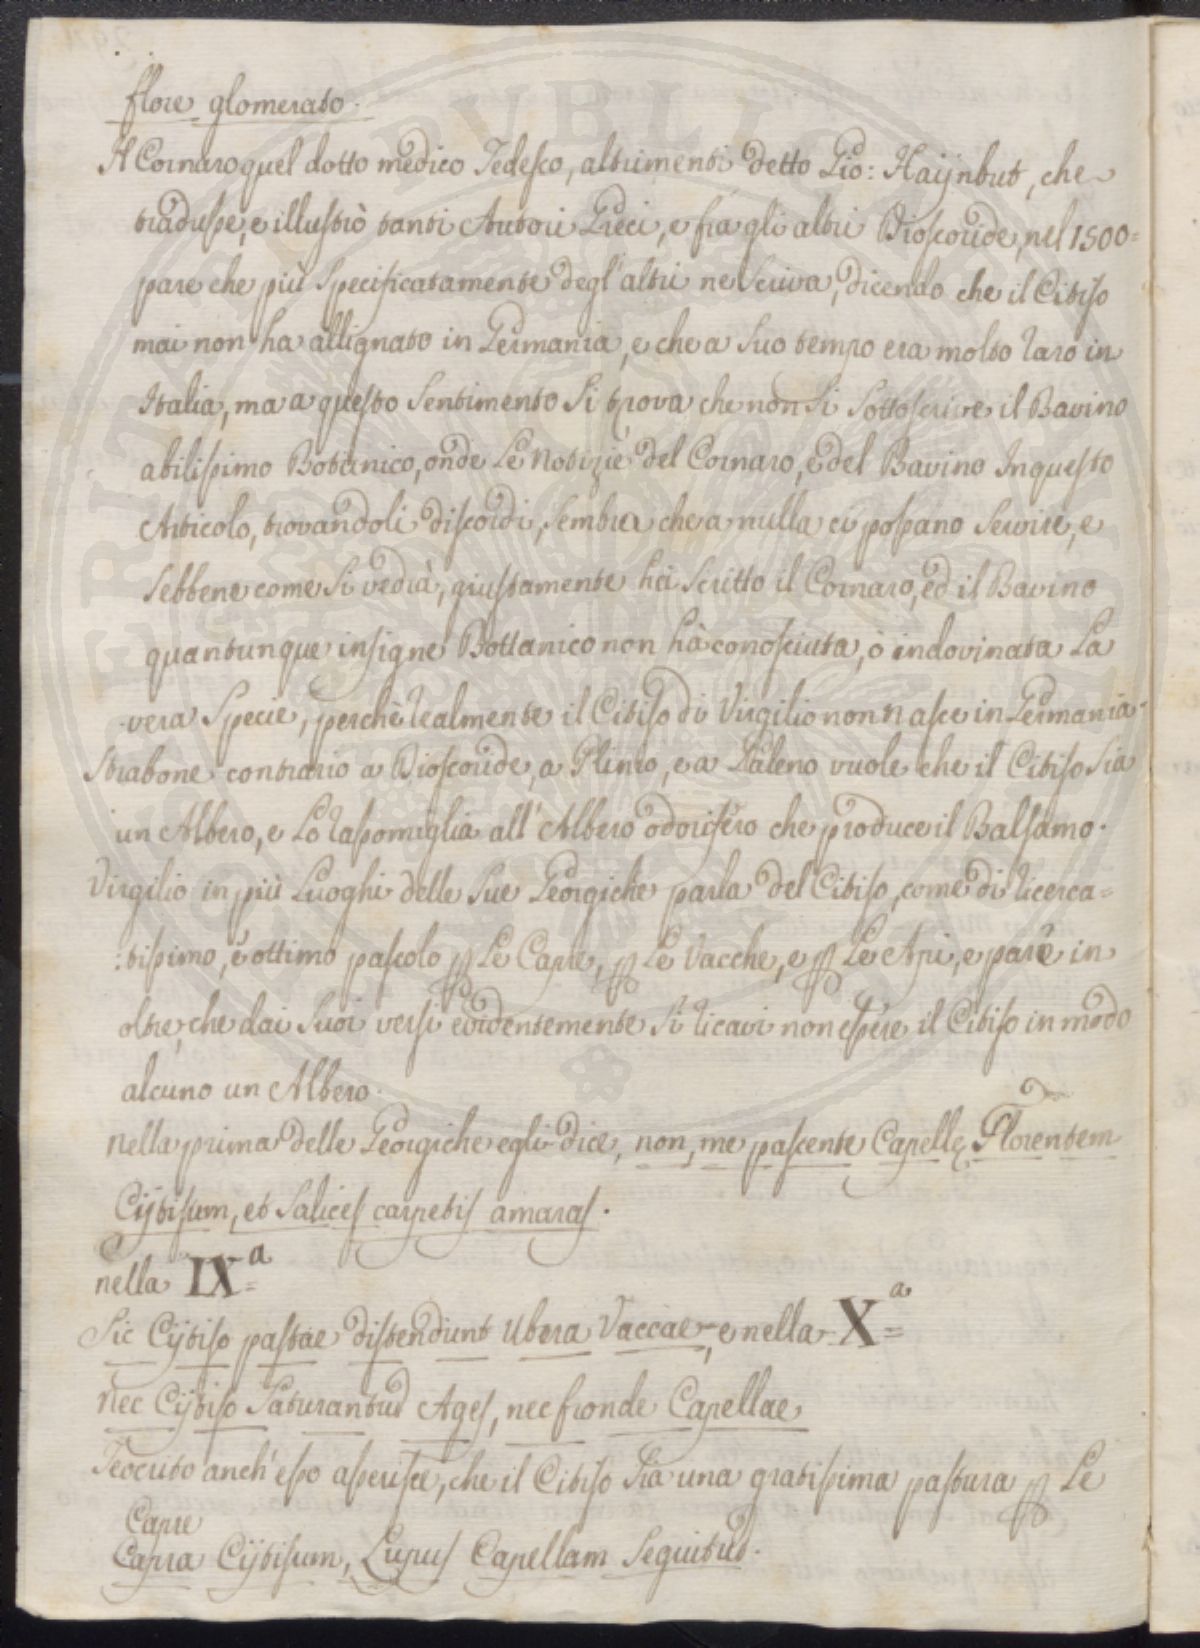 flore glomerato.
Il Cornaro quel dotto medico Tedesco, altrimenti detto Gio: Haijnbut, che
tradusse, e illustrò tanti Autori Greci, e fra gli altri Dioscoride, nel 1500=
pare che più specificatamente degl'altri ne scriva, dicendo che il Citiso
mai non ha allignato in Germania, e che a suo tempo era molto raro in
Italia, ma a questo sentimento si trova che non si sottoscrive il Bavino
abilissimo Botanico, onde le notizie del Cornaro, e del Bavino In questo
Articolo, trovandoli discordi, sembra che a nulla ci possano servire, e
sebbene come si vedrà, giustamente hà scritto il Cornaro, ed il Bavino
quantunque insigne Bottanico non hà conosciuta, ò indovinata la
vera specie, perchè realmente il Citiso di Virgilio non nasce in Germania.
Strabone contrario a Dioscoride, a Plinio, e a Galeno vuole che il Citiso sia
un Albero, e lo rassomiglia all'Albero odorifero che produce il Balsamo.
Virgilio in più Luoghi delle sue Georgiche parla del Citiso, come di ricerca=
:tissimo, e ottimo pascolo p le Capre, p le Vacche, e p le Api, e pare in
oltre, che dai suoi versi evidentemente si ricavi non essere il Citiso in modo
alcuno un Albero.
nella prima delle Georgiche egli dice, non, me pascente Capellę Florentem
Cijtisum, et salices carpetis amaras.
nella IX.a=
Sic Cijtiso pastae distendunt Ubera Vaccae, e nella X.a=
nec Cijtiso saturantur Apes, nec fronde Capellae
Teocrito anch'esso asserisce, che il Citiso sia una gratissima pastura p le
Capre
Capra Cijtisum, Lupus Capellam sequitur.